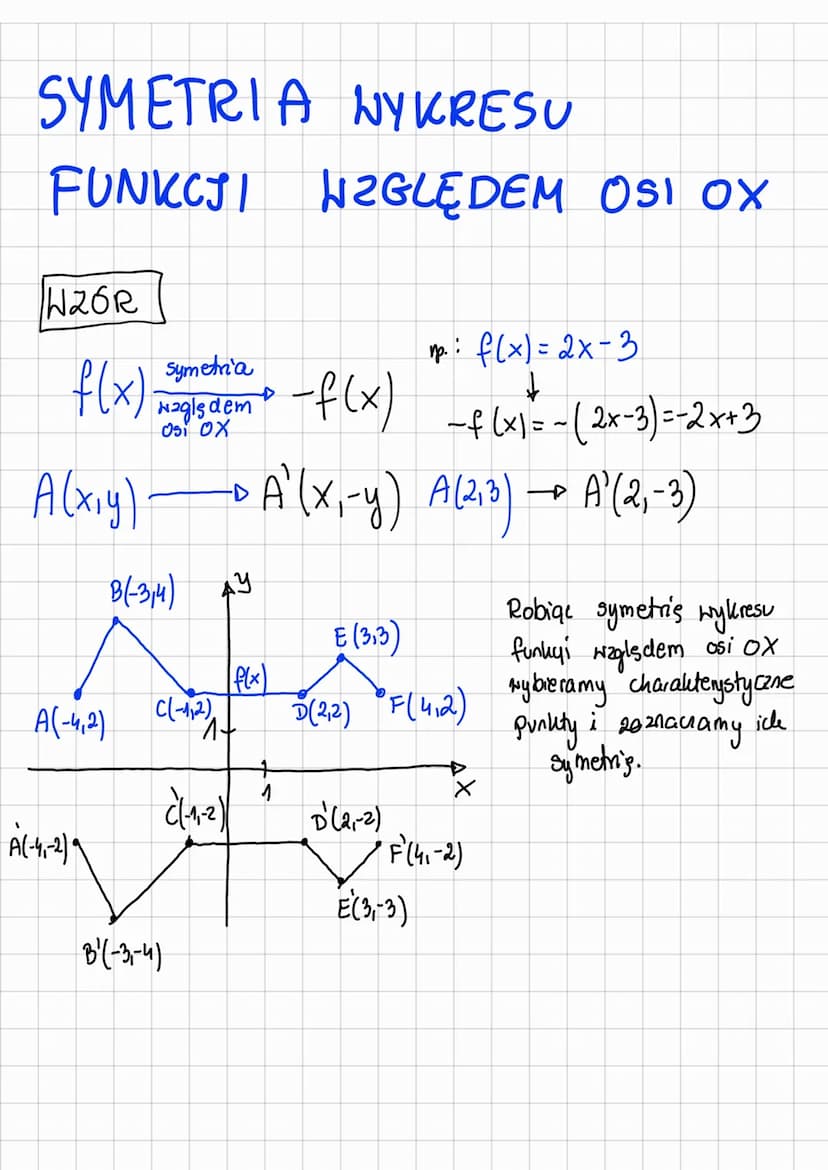 SYMETRIA WYKRESU
FUNKCJI WZGLĘDEM OSI OX
WZÓR
np.: f(x) = 2x-3
f(x) symetria względem osi OX -f(x)
-f(x) = -(2x-3) = -2x+3
A(x,y) → A'(x,-y) A(2,3) → A'(2,-3)
B(-3,4)
y
E(3,3)
f(x)
A(-4,2) C(-1,2) D(2,2) F(4,2)
1
1
x
C'(-1,-2) D'(2,-2)
A'(-4,-2) F'(4,-2)
E'(3,-3)
B'(-3,-4)
Robiąc symetrię wykresu
funkcji względem osi OX
wybieramy charakterystyczne
punkty i zaznaczamy ich
symetrię.